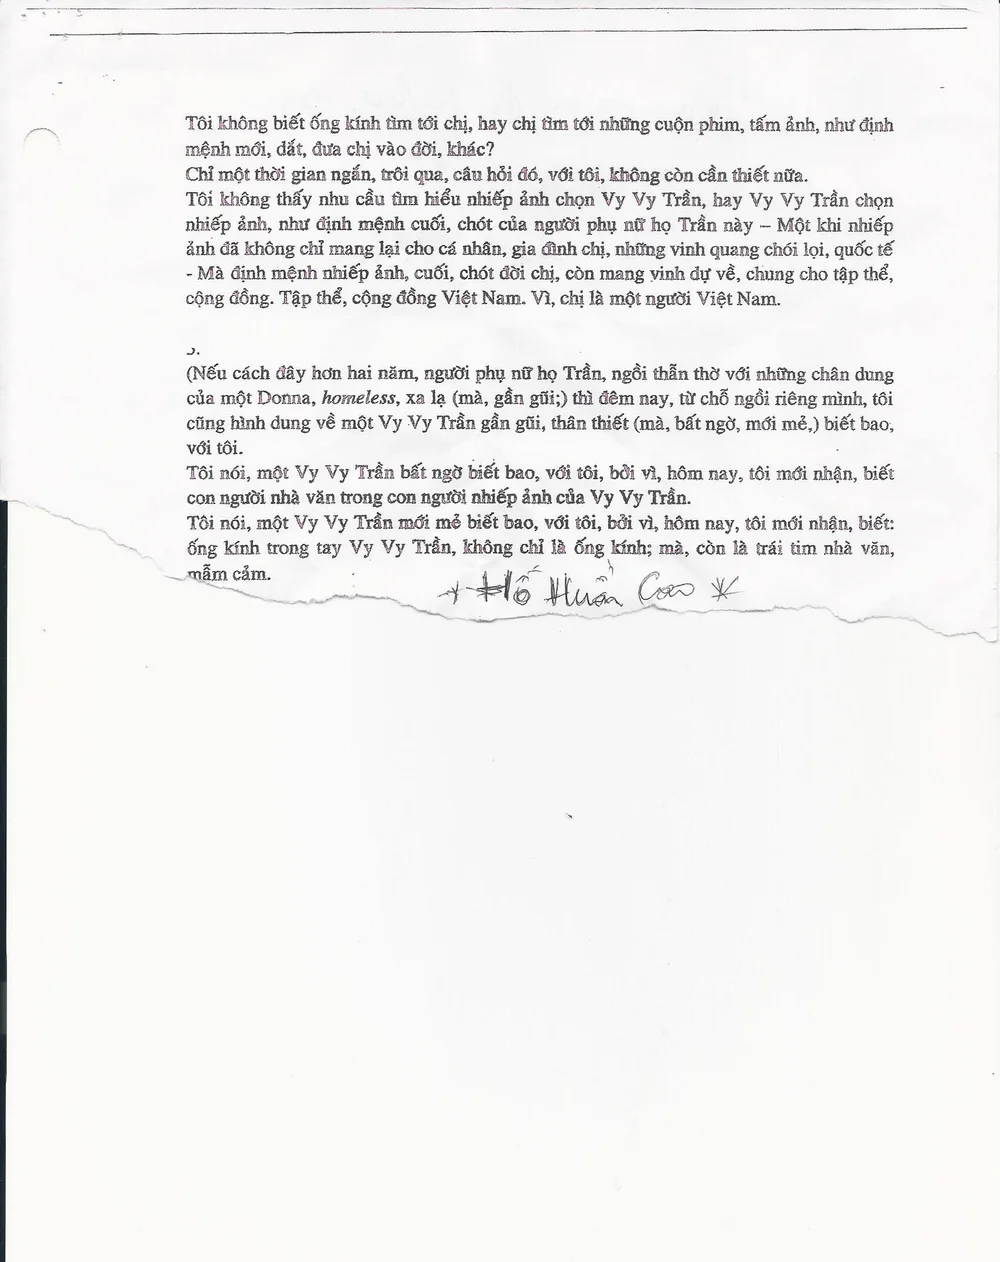 Tôi không biết ống kính tìm tới chị, hay chị tìm tới những cuộn phim, tấm ảnh, như định
mệnh mới, dắt, đưa chị vào đời, khác?
Chỉ một thời gian ngắn, trôi qua, câu hỏi đó, với tôi, không còn cần thiết nữa.
Tôi không thấy nhu cầu tìm hiểu nhiếp ảnh chọn Vy Vy Trần, hay Vy Vy Trần chọn
nhiếp ảnh, như định mệnh cuối, chót của người phụ nữ họ Trần này – Một khi nhiếp
ảnh đã không chỉ mang lại cho cá nhân, gia đình chị, những vinh quang chói lọi, quốc tế
- Mà định mệnh nhiếp ảnh, cuối, chót đời chị, còn mang vinh dự về, chung cho tập thể,
cộng đồng. Tập thể, cộng đồng Việt Nam. Vì, chị là một người Việt Nam.
(Nếu cách đây hơn hai năm, người phụ nữ họ Trần, ngồi thẫn thờ với những chân dung
của một Donna, homeless, xa lạ (mà, gần gũi;) thì đêm nay, từ chỗ ngồi riêng mình, tôi
cũng hình dung về một Vy Vy Trần gần gũi, thân thiết (mà, bất ngờ, mới mẻ,) biết bao,
với tôi.
Tôi nói, một Vy Vy Trần bất ngờ biết bao, với tôi, bởi vì, hôm nay, tôi mới nhận, biết
con người nhà văn trong con người nhiếp ảnh của Vy Vy Trần.
Tôi nói, một Vy Vy Trần mới mẻ biết bao, với tôi, bởi vì, hôm nay, tôi mới nhận, biết:
ống kính trong tay Vy Vy Trần, không chỉ là ống kính; mà, còn là trái tim nhà văn,
mẫm cảm.